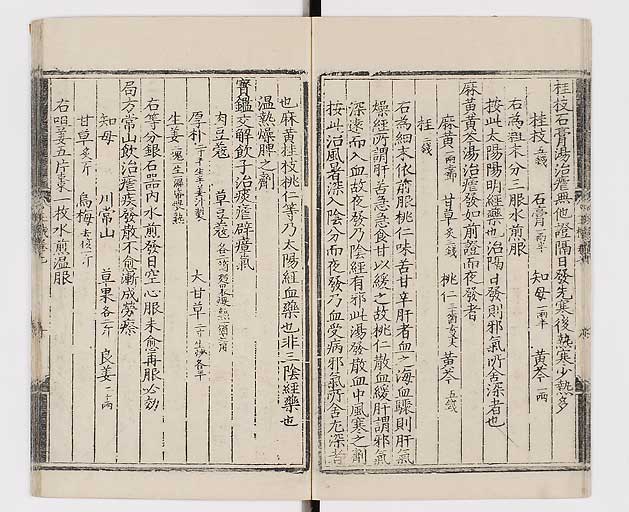 桂枝石膏湯治瘧無他證隔日發先寒後熱寒少熱多
桂枝 五錢 石膏 知母 黃芩 一兩
右為粗末分三服水煎服
按此太陽陽明經藥也治隔日發則邪氣所舍深者也
麻黃黃芩湯治瘧發如前證而夜發者
麻黃 甘草 炙三錢 桃仁 黃芩 五錢
桂 二錢
右為細末依前服桃仁味苦甘辛肝者血之海血驟則肝氣
燥經所謂肝苦急急食甘以緩之故桃仁散血緩肝謂邪氣
深遠而入血故夜發乃陰經有邪此湯發散血中風寒之劑
按此治風暑深入陰分而夜發乃血受病邪氣所舍尤深者
也麻黃桂枝桃仁等乃太陽經血藥也非三陰經藥也
溫熱燥脾之劑
寶鑑交解飲子治痰瘧辟瘴氣
肉豆蔻 草豆蔻
厚朴 大甘草
生姜
右等分銀石器內水煎發日空心服未愈再服必効
局方常山飲治瘧疾發散不愈漸成勞瘵
知母 川常山 草果 各二斤 良姜
甘草 炙一斤 烏梅 去核一斤
右㕮姜五片棗一枚水煎溫服